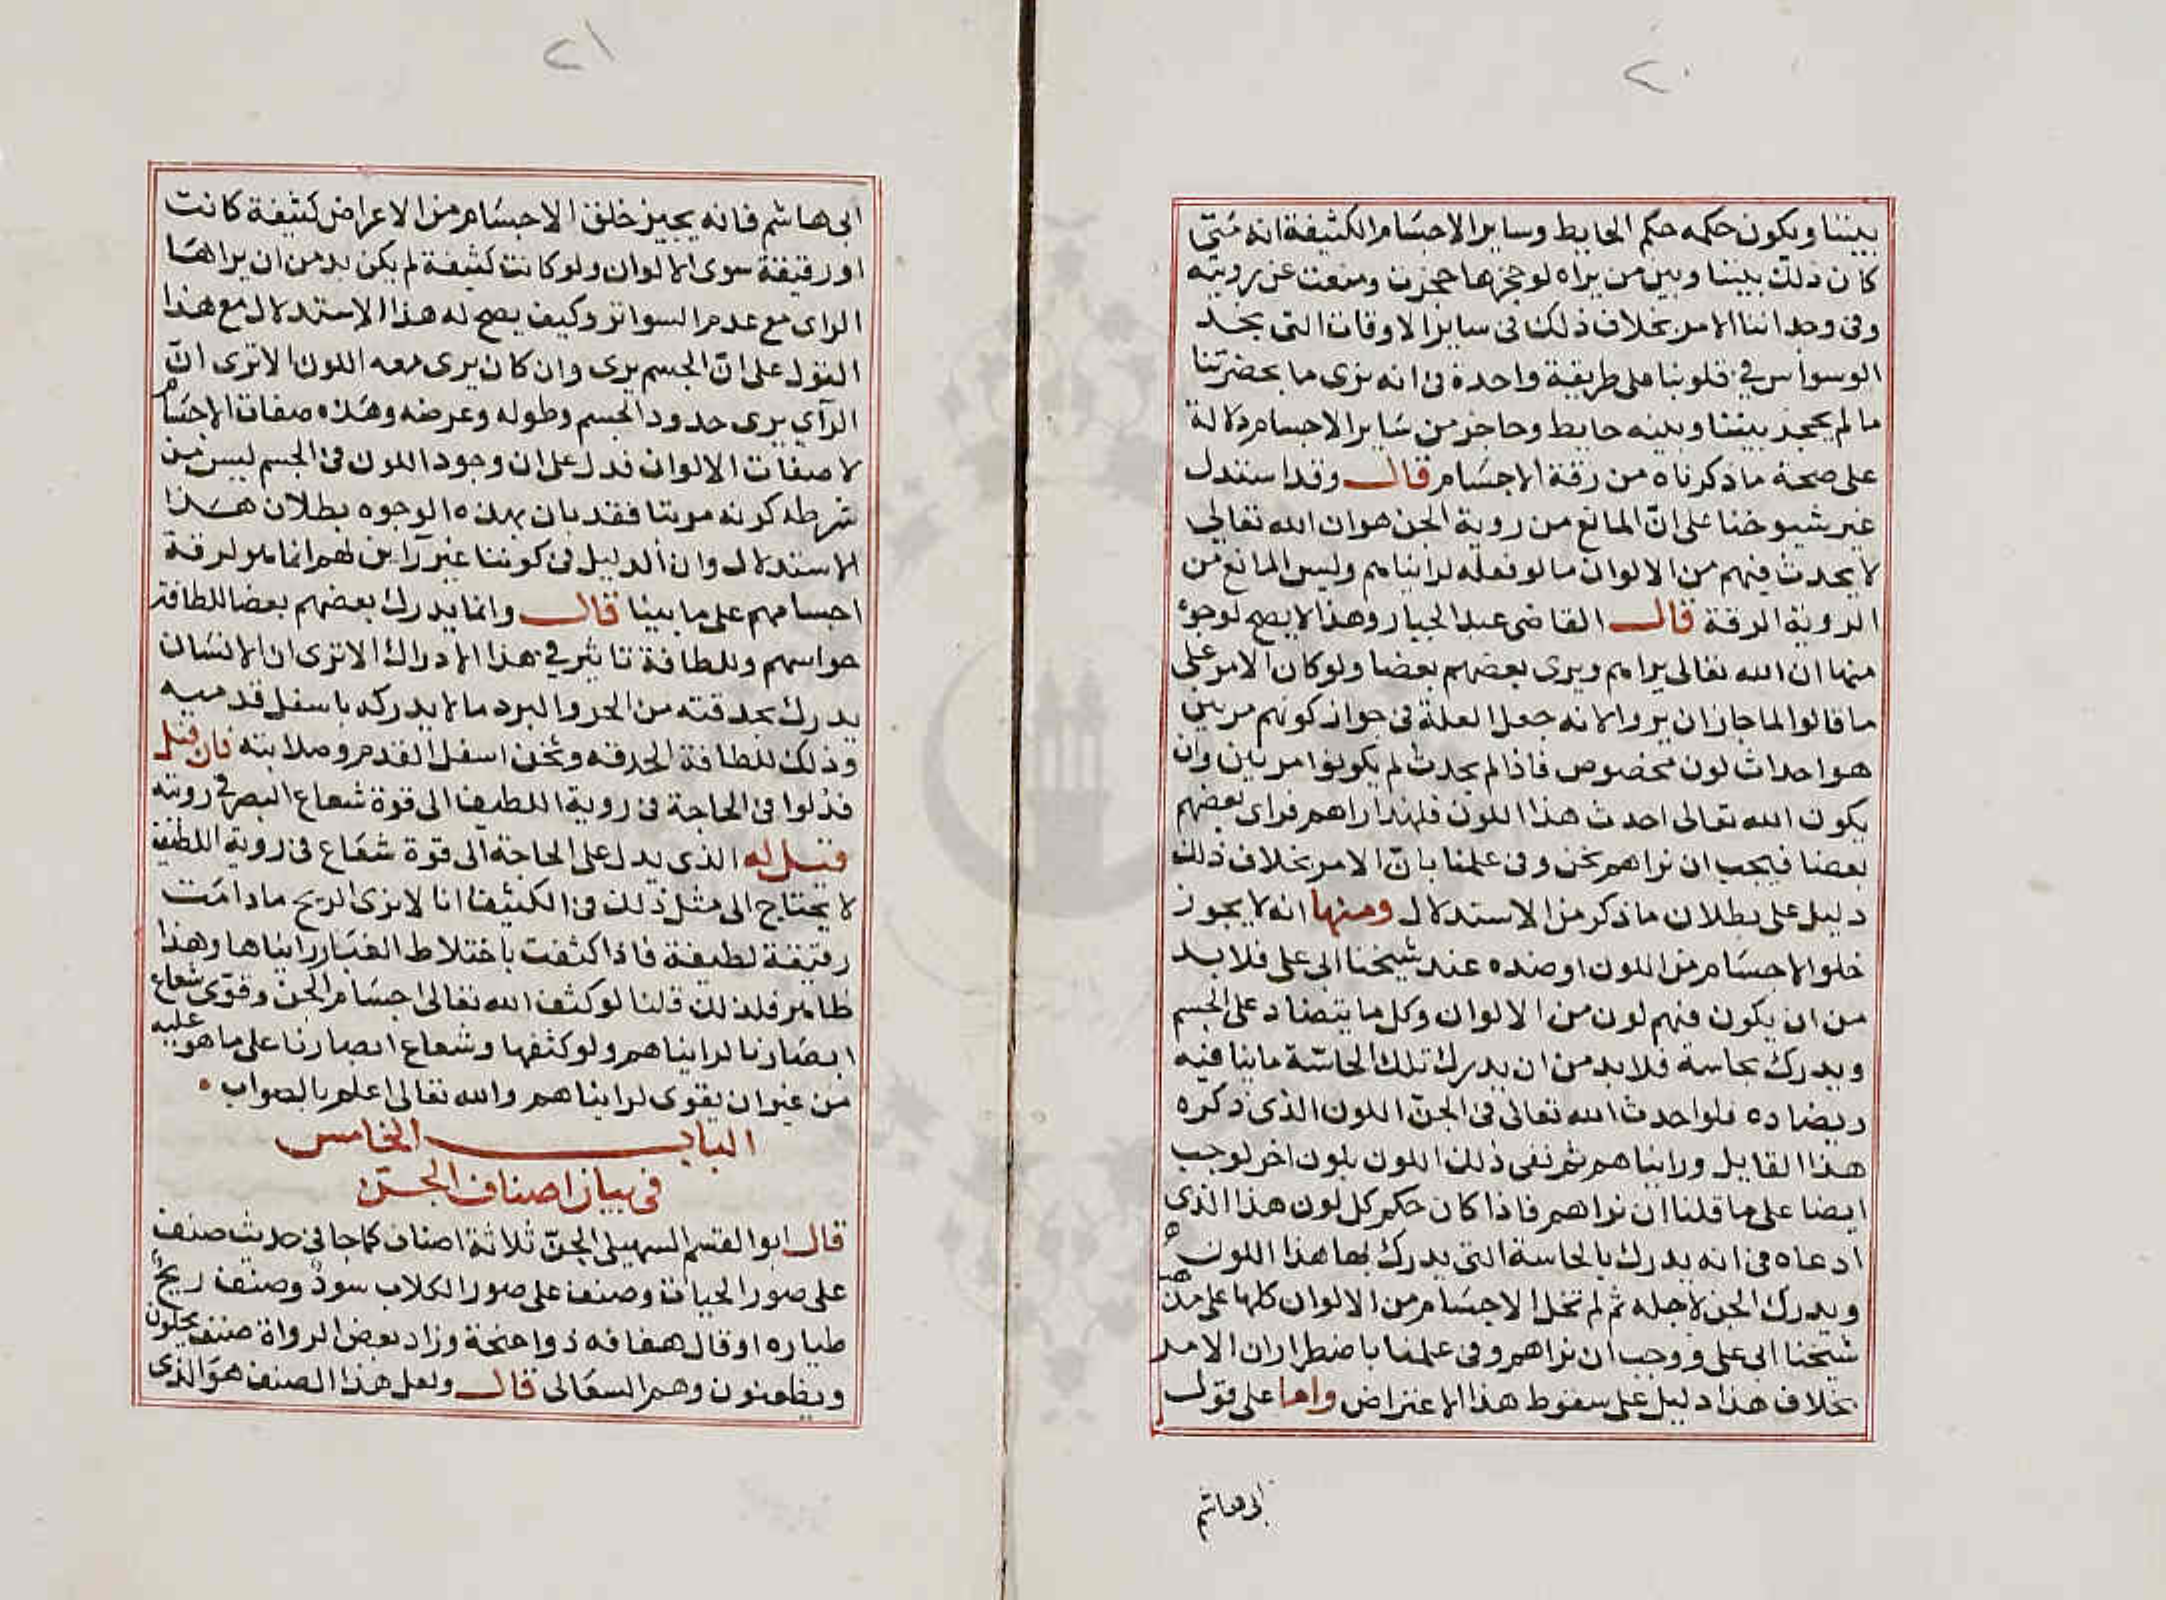 ٢٠
بيننا ويكون حكمه حكم الحايط وساير الاجسام الكثيفة انه متى
كان ذلك بيننا وبين من يراه لوحجزها حجزت ومنعت عن رويته
وفى وجداننا الامر بخلاف ذلك فى ساير الاوقات التى نجد
الوسواس في قلوبنا على طريقة واحدة فى انه نرى ما بحضرتنا
ما لم يحجز بيننا وبينه حايط وحاجز من ساير الاجسام دلالة
على صحة ما ذكرناه من رقة الاجسام قال وقد استدل
غير شيوخنا على انّ المانع من روية الجن هو ان الله تعالى
لا يحدث فيهم من الالوان ما لو فعله لرايناهم وليس المانع من
الروية الرقة قال القاضى عبد الجبار وهذا لا يصح لوجوه
منها ان الله تعالى يراهم ويرى بعضهم بعضا ولو كان الامر على
ما قالوا لما جاز ان يروا لانه جعل العلة فى جواز كونهم مريين
هو احداث لون مخصوص فاذا لم يحدث لم يكونوا مريين وان
يكون الله تعالى احدث هذا اللون فلهذا راهم فراى بعضهم
بعضا فيجب ان نراهم نحن وفى علمنا بانّ الامر بخلاف ذلك
دليل على بطلان ما ذكر من الاستدلال ومنها انه لا يجوز
خلو الاجسام من اللون او ضده عند شيخنا ابى على فلا بد
من ان يكون فيهم لون من الالوان وكل ما يتضاد على الجسم
ويدرك بحاسة فلا بد من ان يدرك تلك الحاسّة ماينا فيه
ويضاده فلو احدث الله تعالى فى الجنّ اللون الذى ذكره
هذا القايل ورايناهم ثم نفى ذلك اللون بلون اخر لوجب
ايضا على ما قلنا ان نراهم فاذا كان حكم كل لون هذا الذى
ادعاه فى انه يدرك بالحاسة التى يدرك بها هذا اللون
ويدرك الجن لاجله ثم لم تخل الاجسام من الالوان كلها على مذهب
شيخنا ابى على ووجب ان نراهم وفى علمنا باضطرار ان الامر
بخلاف هذا دليل على سقوط هذا الاعتراض واما على قول
ابى هاشم
٢١
ابى هاشم فانه يجيز خلق الاجسام من الاعراض كثيفة كانت
او رقيقة سوى الالوان ولو كانت كثيفة لم يكن بد من ان يراها
الراى مع عدم السواتر وكيف يصح له هذا الاستدلال مع هذا
القول على انّ الجسم يرى وان كان يرى معه اللون الا ترى انّ
الرآي يرى حدود الجسم وطوله وعرضه وهذه صفات الاجسام
لا صفات الالوان فدل على ان وجود اللون فى الجسم ليس من
شرطه كونه مريتا فقد بان بهذه الوجوه بطلان هذا
الاستدلال وان الدليل فى كوننا غير رآين لهم انما هو لرقة
اجسامهم على ما بينا قال وانما يدرك بعضهم بعضا للطافة
حواسهم وللطافة تاثير في هذا الادراك الا ترى ان الانسان
يدرك بحدقته من الحر والبرد ما لا يدركه باسفل قدميه
وذلك للطافة الحدقه وثخن اسفل القدم وصلابته فان قيل
فدلوا فى الحاجة فى روية اللطيف الى قوة شعاع البصر في رويته
قيل له الذى يدل على الحاجة الى قوة شعاع فى روية اللطيف
لا يحتاج الى مثل ذلك فى الكثيف انا لا نرى الريح ما دامت
رقيقة لطيفة فاذا كثفت باختلاط الغبار رايناها وهذا
ظاهر فلذلك قلنا لو كثف الله تعالى اجسام الجن وقوّى شعاع
ابصارنا لرايناهم ولو كثفها وشعاع ابصارنا على ما هو عليه
من غير ان يقوى لرايناهم والله تعالى اعلم بالصواب •
الباب الخامس
فى بيان اصناف الجن
قال ابو القسم السهيلى الجنّ ثلاثة اصناف كما جا فى حديث صنف
على صور الحيات وصنف على صور الكلاب سود وصنف ريح
طياره او قال هفافه ذوا جنحة وزاد بعض الرواة صنف يحلون
ويظعنون وهم السعالى قال ولعل هذا الصنف هو الذى